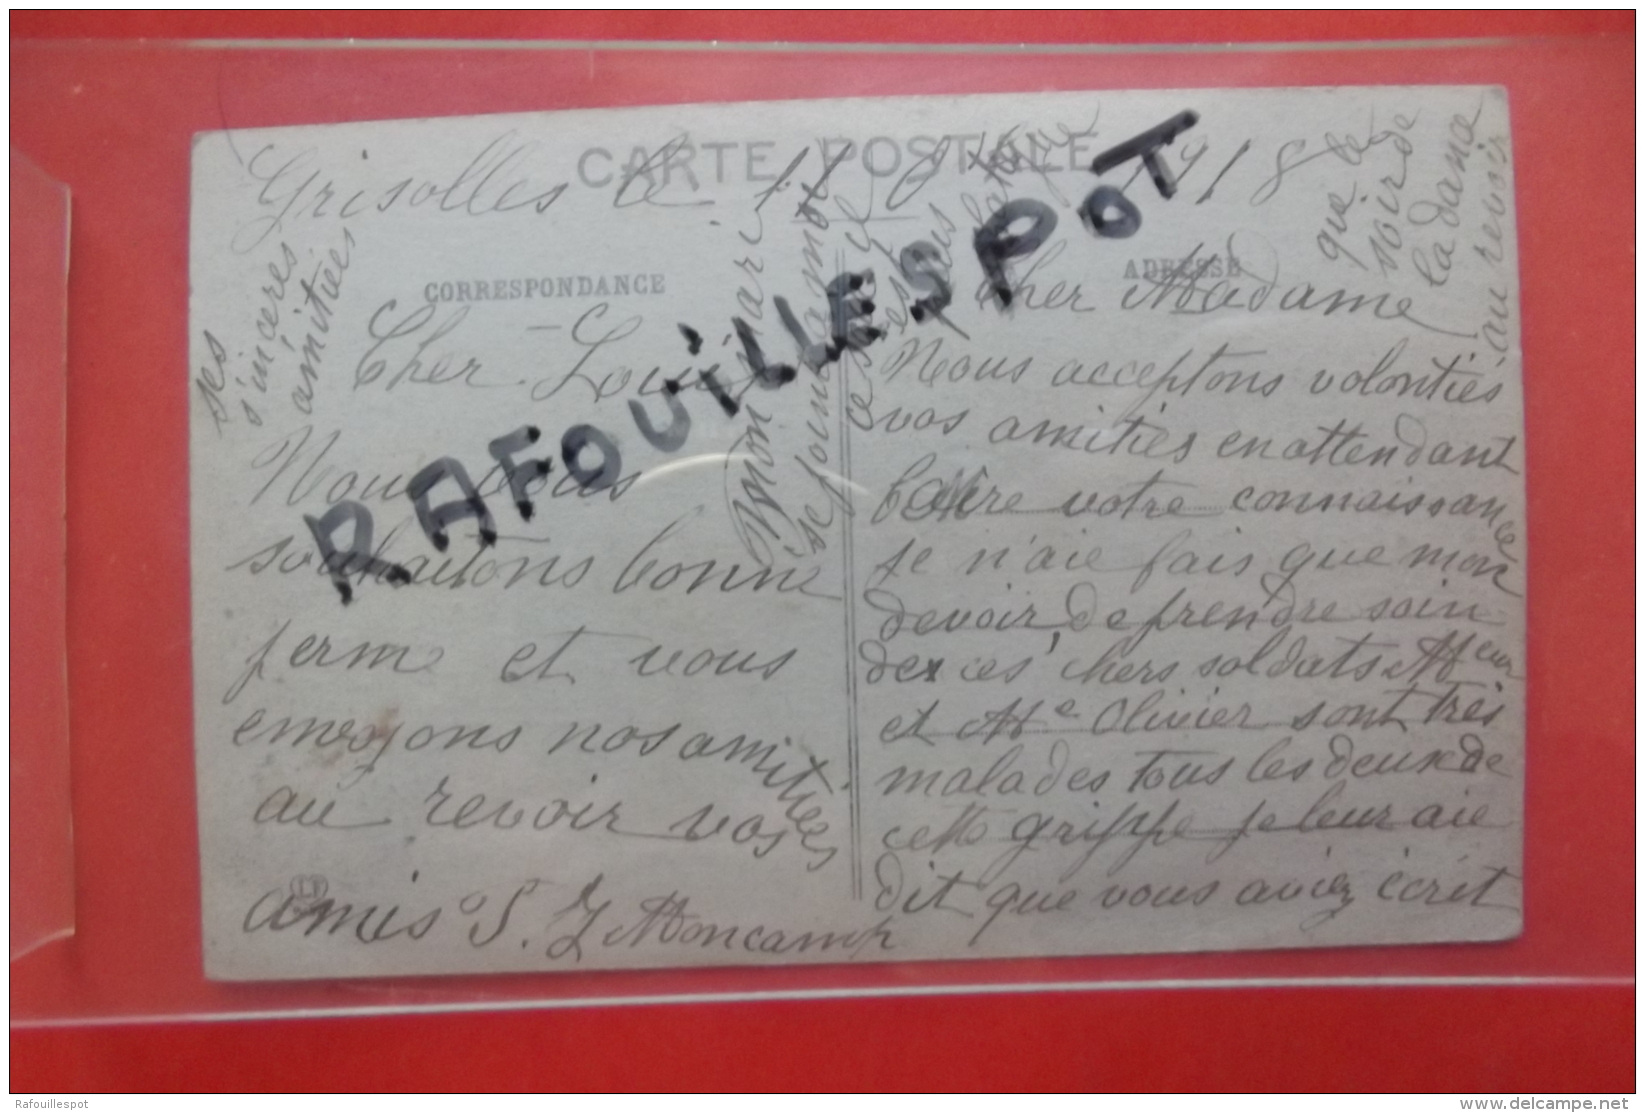 CARTE POSTALE
Grisolles le 11 1918
CORRESPONDANCE
ADRESSE
Cher Louis
Nous vous
souhaitons bonne
ferme et vous
emvoyons nos amitiées
au revoir vos
amis S. Z Moncamp
ses
sinceres
amitiées
Mon mari
se joint a moi
Cher Madame
Nous acceptons volontiés
vos amitiés en attendant
faire votre connaissance
je n'aie fais que mon
devoir de prendre soin
de ces chers soldats Meur
et Me Olivier sont très
malades tous les deux de
cette grippe je leur aie
dit que vous aviez écrit
que le
soir de
la danse
au revoir
RAFOUILLESPOT
Rafouillespot
delcampe.net